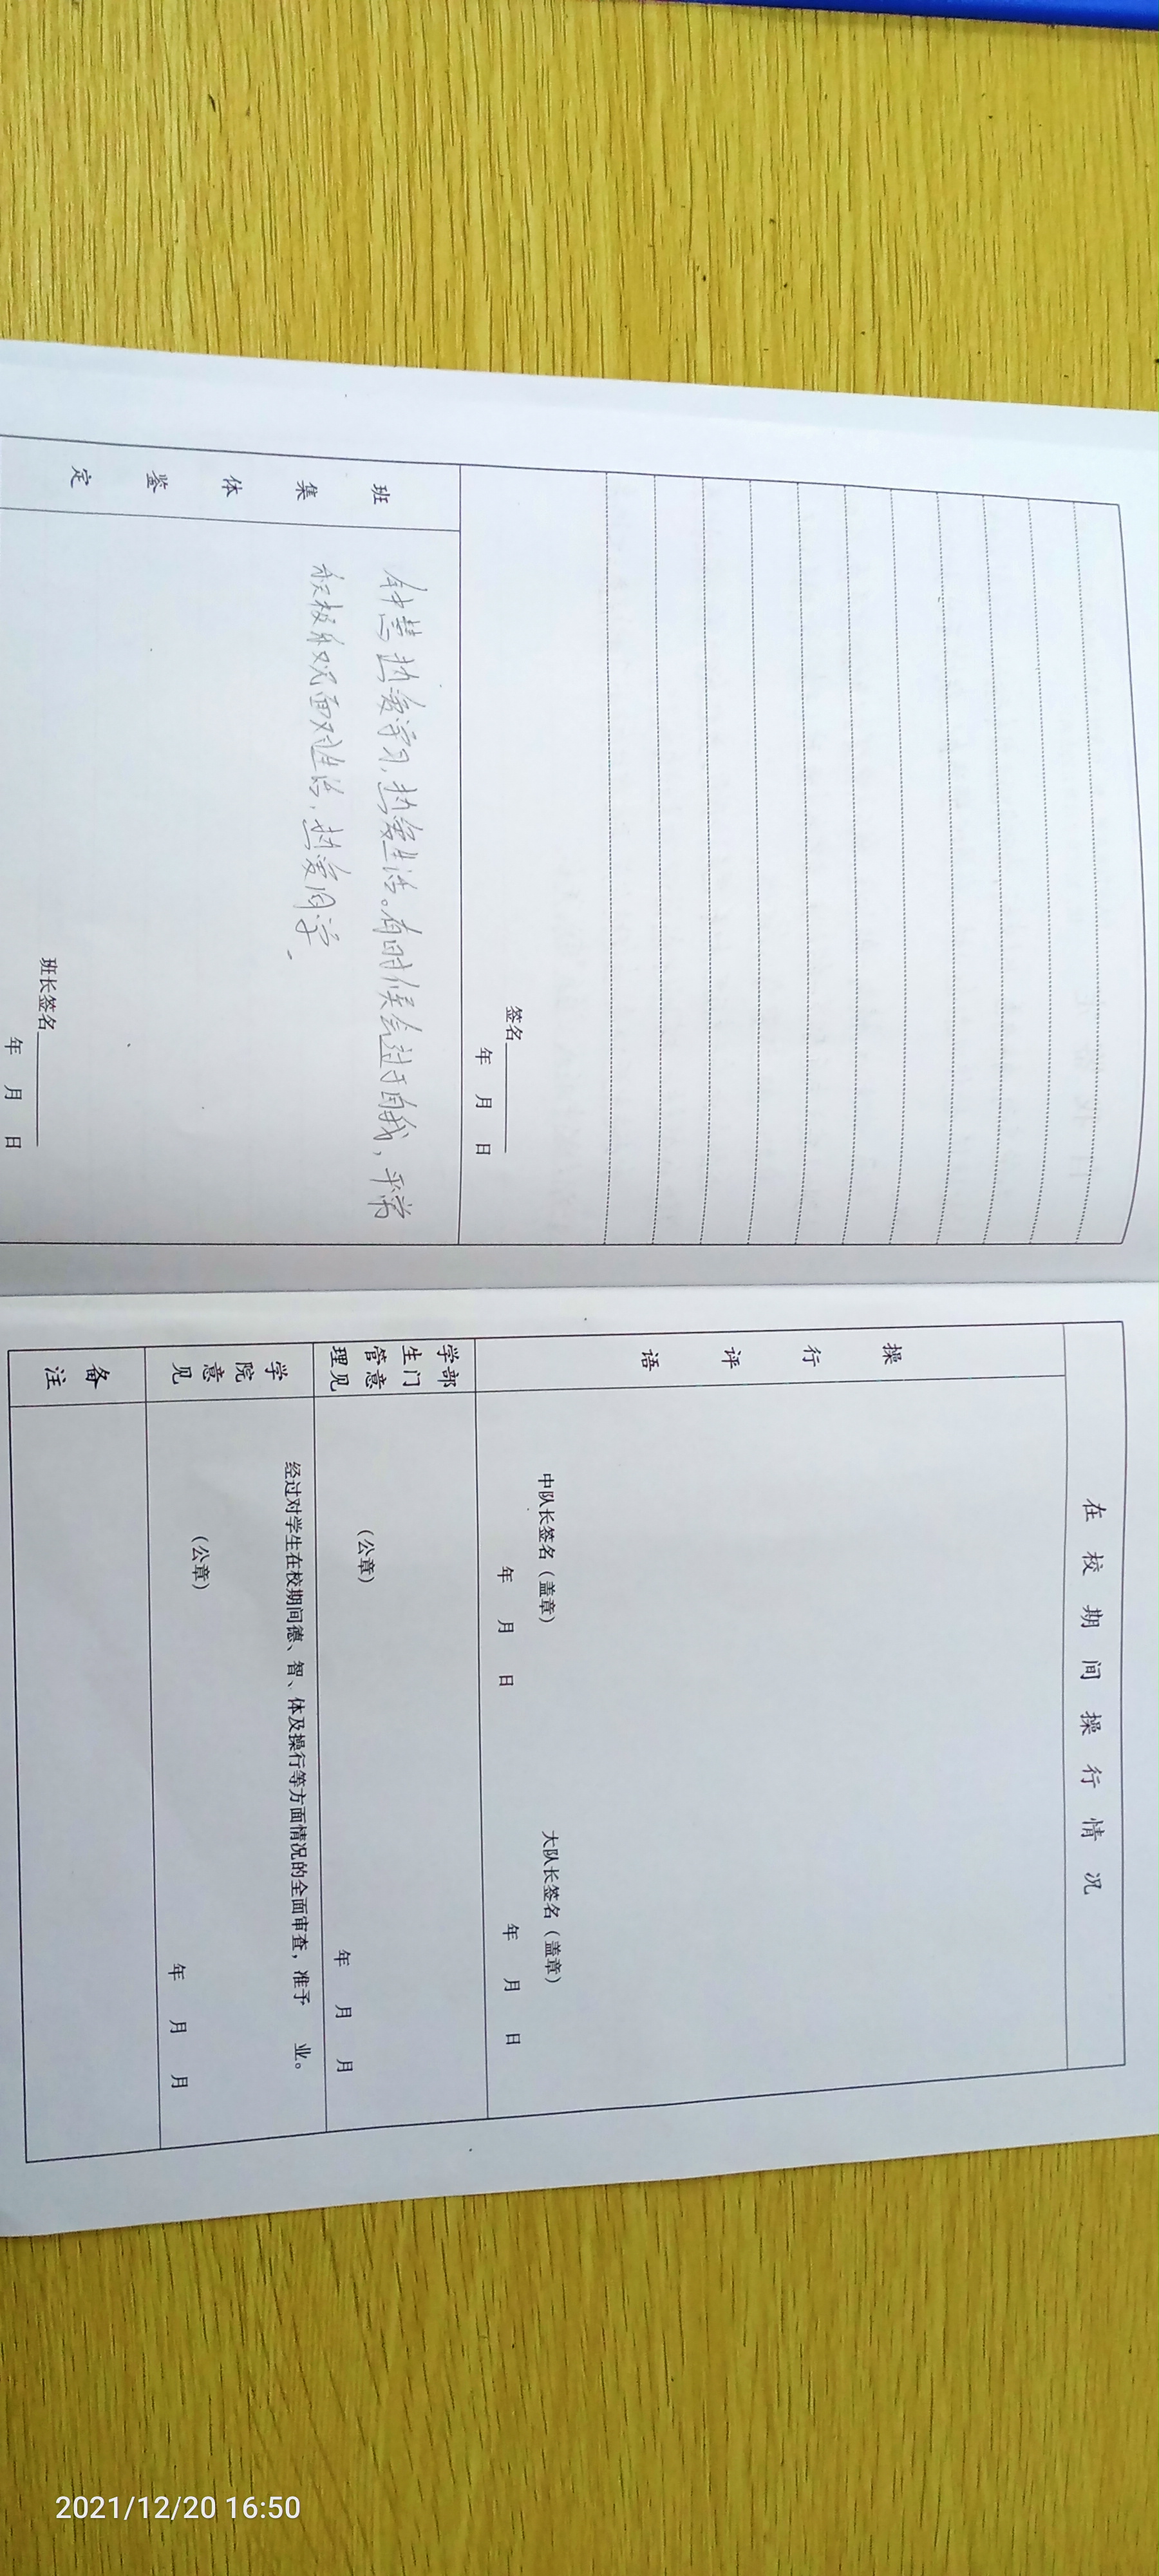 签名
年 月 日
班集体鉴定
钟慧热爱学习,热爱生活。有时候会过于自我,平常
积极乐观面对生活,热爱同学.
班长签名
年 月 日
在校期间操行情况
操行评语
中队长签名(盖章)
大队长签名(盖章)
年 月 日
年 月 日
学生管理部门意见
(公章)
年 月 月
学院意见
经过对学生在校期间德、智、体及操行等方面情况的全面审查,准予 业。
(公章)
年 月 月
备注
2021/12/20 16:50